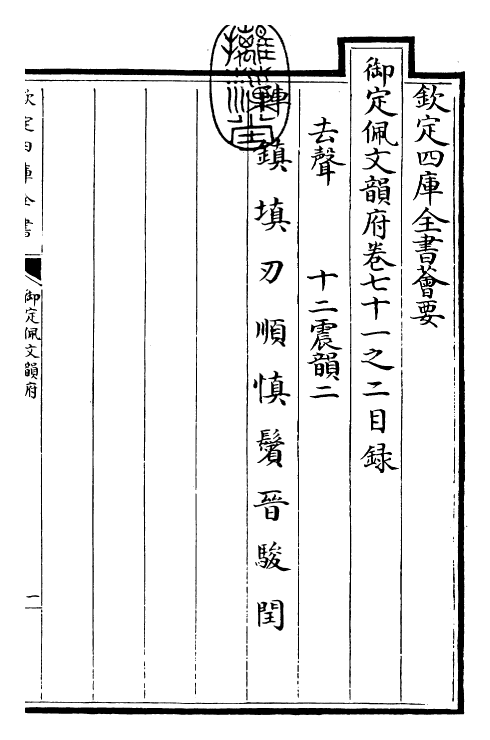 欽定四庫全書薈要
御定佩文韻府卷七十一之二目録
去聲　十二震韻二
鎮填刃順慎鬢晉駿閏
欽定四庫全書
御定佩文韻府
一